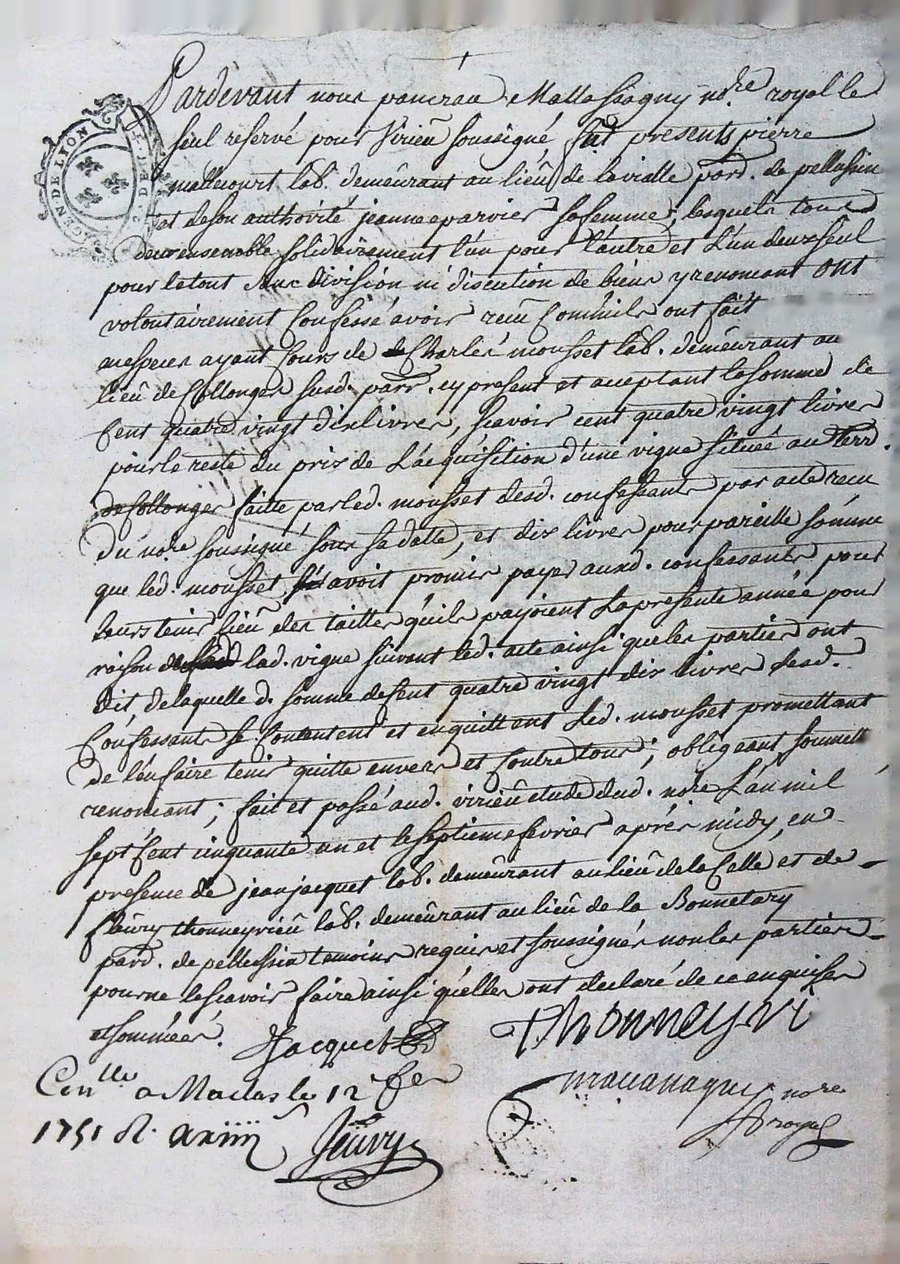 Pardevant nous pancrau Mallassagny no.re royal le
seul reservé pour Virieu soussigné, fut presents pierre
mallecourt lab. demeurant au lieu de la vialle parr. de pellussin
et de son authorité jeanne parvier sa femme, lesquels tous
deux ensemble solidairement l'un pour l'autre et l'un deux seul
pour le tout sans division ni discution de biens y renonçant ont
volontairement Confessé avoir receu Comm'ils ont fait
en especes ayant Cours de Charles mousset lab. demeurant au
lieu de Collonges susd. parr. cy present et acceptant la somme de
Cent quatre vingt dix livres, scavoir cent quatre vingt livres
pour le reste du prix de L'acquisition d'une vigne située au terr.
de Collonges faitte par led. mousset desd. confessants par acte receu
du no.re soussigné sous sa datte, et dix livres pour pareille somme
que led. mousset avoit promis payer auxd. confessants pour
leurs tenir lieu des tailles qu'ils payoient La presente année pour
raison de lad. vigne suivant led. acte ainsi que les parties ont
dit de laquelle d. somme de Cent quatre vingt dix livres lesd.
Confessants se Contentent et en quittent Led. mousset promettant
de l'en faire tenir quitte envers et Contre tous; obligeant soumett
renonçant; fait et passé aud. virieu etude dud. no.re L'an mil
sept Cent cinquante un et le septieme fevrier après midy, en
presence de jean jacquet lab. demeurant au lieu de la Celle et de
fleury thonneyrieu lab. demeurant au lieu de la Bonnetary
parr. de pellussin temoins requis et soussignés non les parties
pour ne le scavoir faire ainsi qu'elles ont declaré de ce enquises
et sommées.
J Jacquet Thonneyri
Con.lle a Maclas le 12 fev
no.re
1751 R. xxiiii
royal